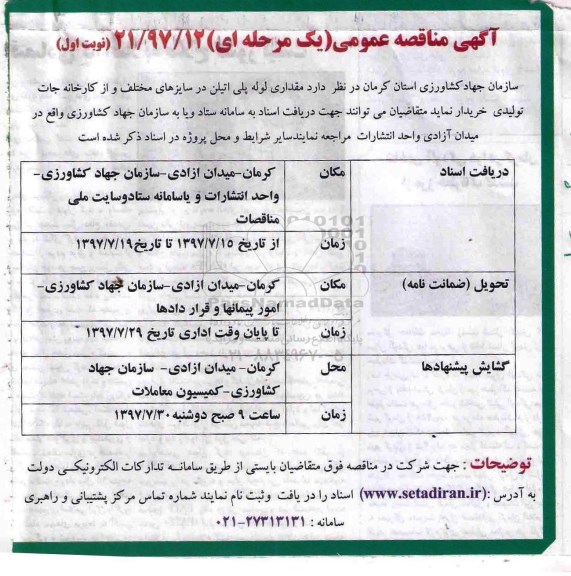 آگهی مناقصه عمومی(یک مرحله ای)۲۱/۹۷/۱۲ (نوبت اول)
سازمان جهادکشاورزی استان کرمان در نظر دارد مقداری لوله پلی اتیلن در سایزهای مختلف و از کارخانه جات
تولیدی خریدار نماید متقاضیان می توانند جهت دریافت اسناد به سامانه ستاد ویا به سازمان جهاد کشاورزی واقع در
میدان آزادی واحد انتشارات مراجعه نمایندسایر شرایط و محل پروژه در اسناد ذکر شده است
دریافت اسناد
مکان
کرمان-میدان ازادی-سازمان جهاد کشاورزی-
واحد انتشارات و یاسامانه ستادوسایت ملی
مناقصات
زمان
از تاریخ ۱۳۹۷/۷/۱۵ تا تاریخ۱۳۹۷/۷/۱۹
تحویل (ضمانت نامه)
مکان
کرمان-میدان ازادی-سازمان جهاد کشاورزی-
امور پیمانها و قرار دادها
زمان
تا پایان وقت اداری تاریخ ۱۳۹۷/۷/۲۹
گشایش پیشنهادها
محل
کرمان- میدان ازادی- سازمان جهاد
کشاورزی-کمیسیون معاملات
زمان
ساعت ۹ صبح دوشنبه۱۳۹۷/۷/۳۰
توضیحات : جهت شرکت در مناقصه فوق متقاضیان بایستی از طریق سامانه تدارکات الکترونیکی دولت
به آدرس :(www.setadiran.ir) اسناد را در یافت وثبت نام نمایند شماره تماس مرکز پشتیبانی و راهبری
سامانه : ۲۷۳۱۳۱۳۱-۰۲۱
ParsNamadData